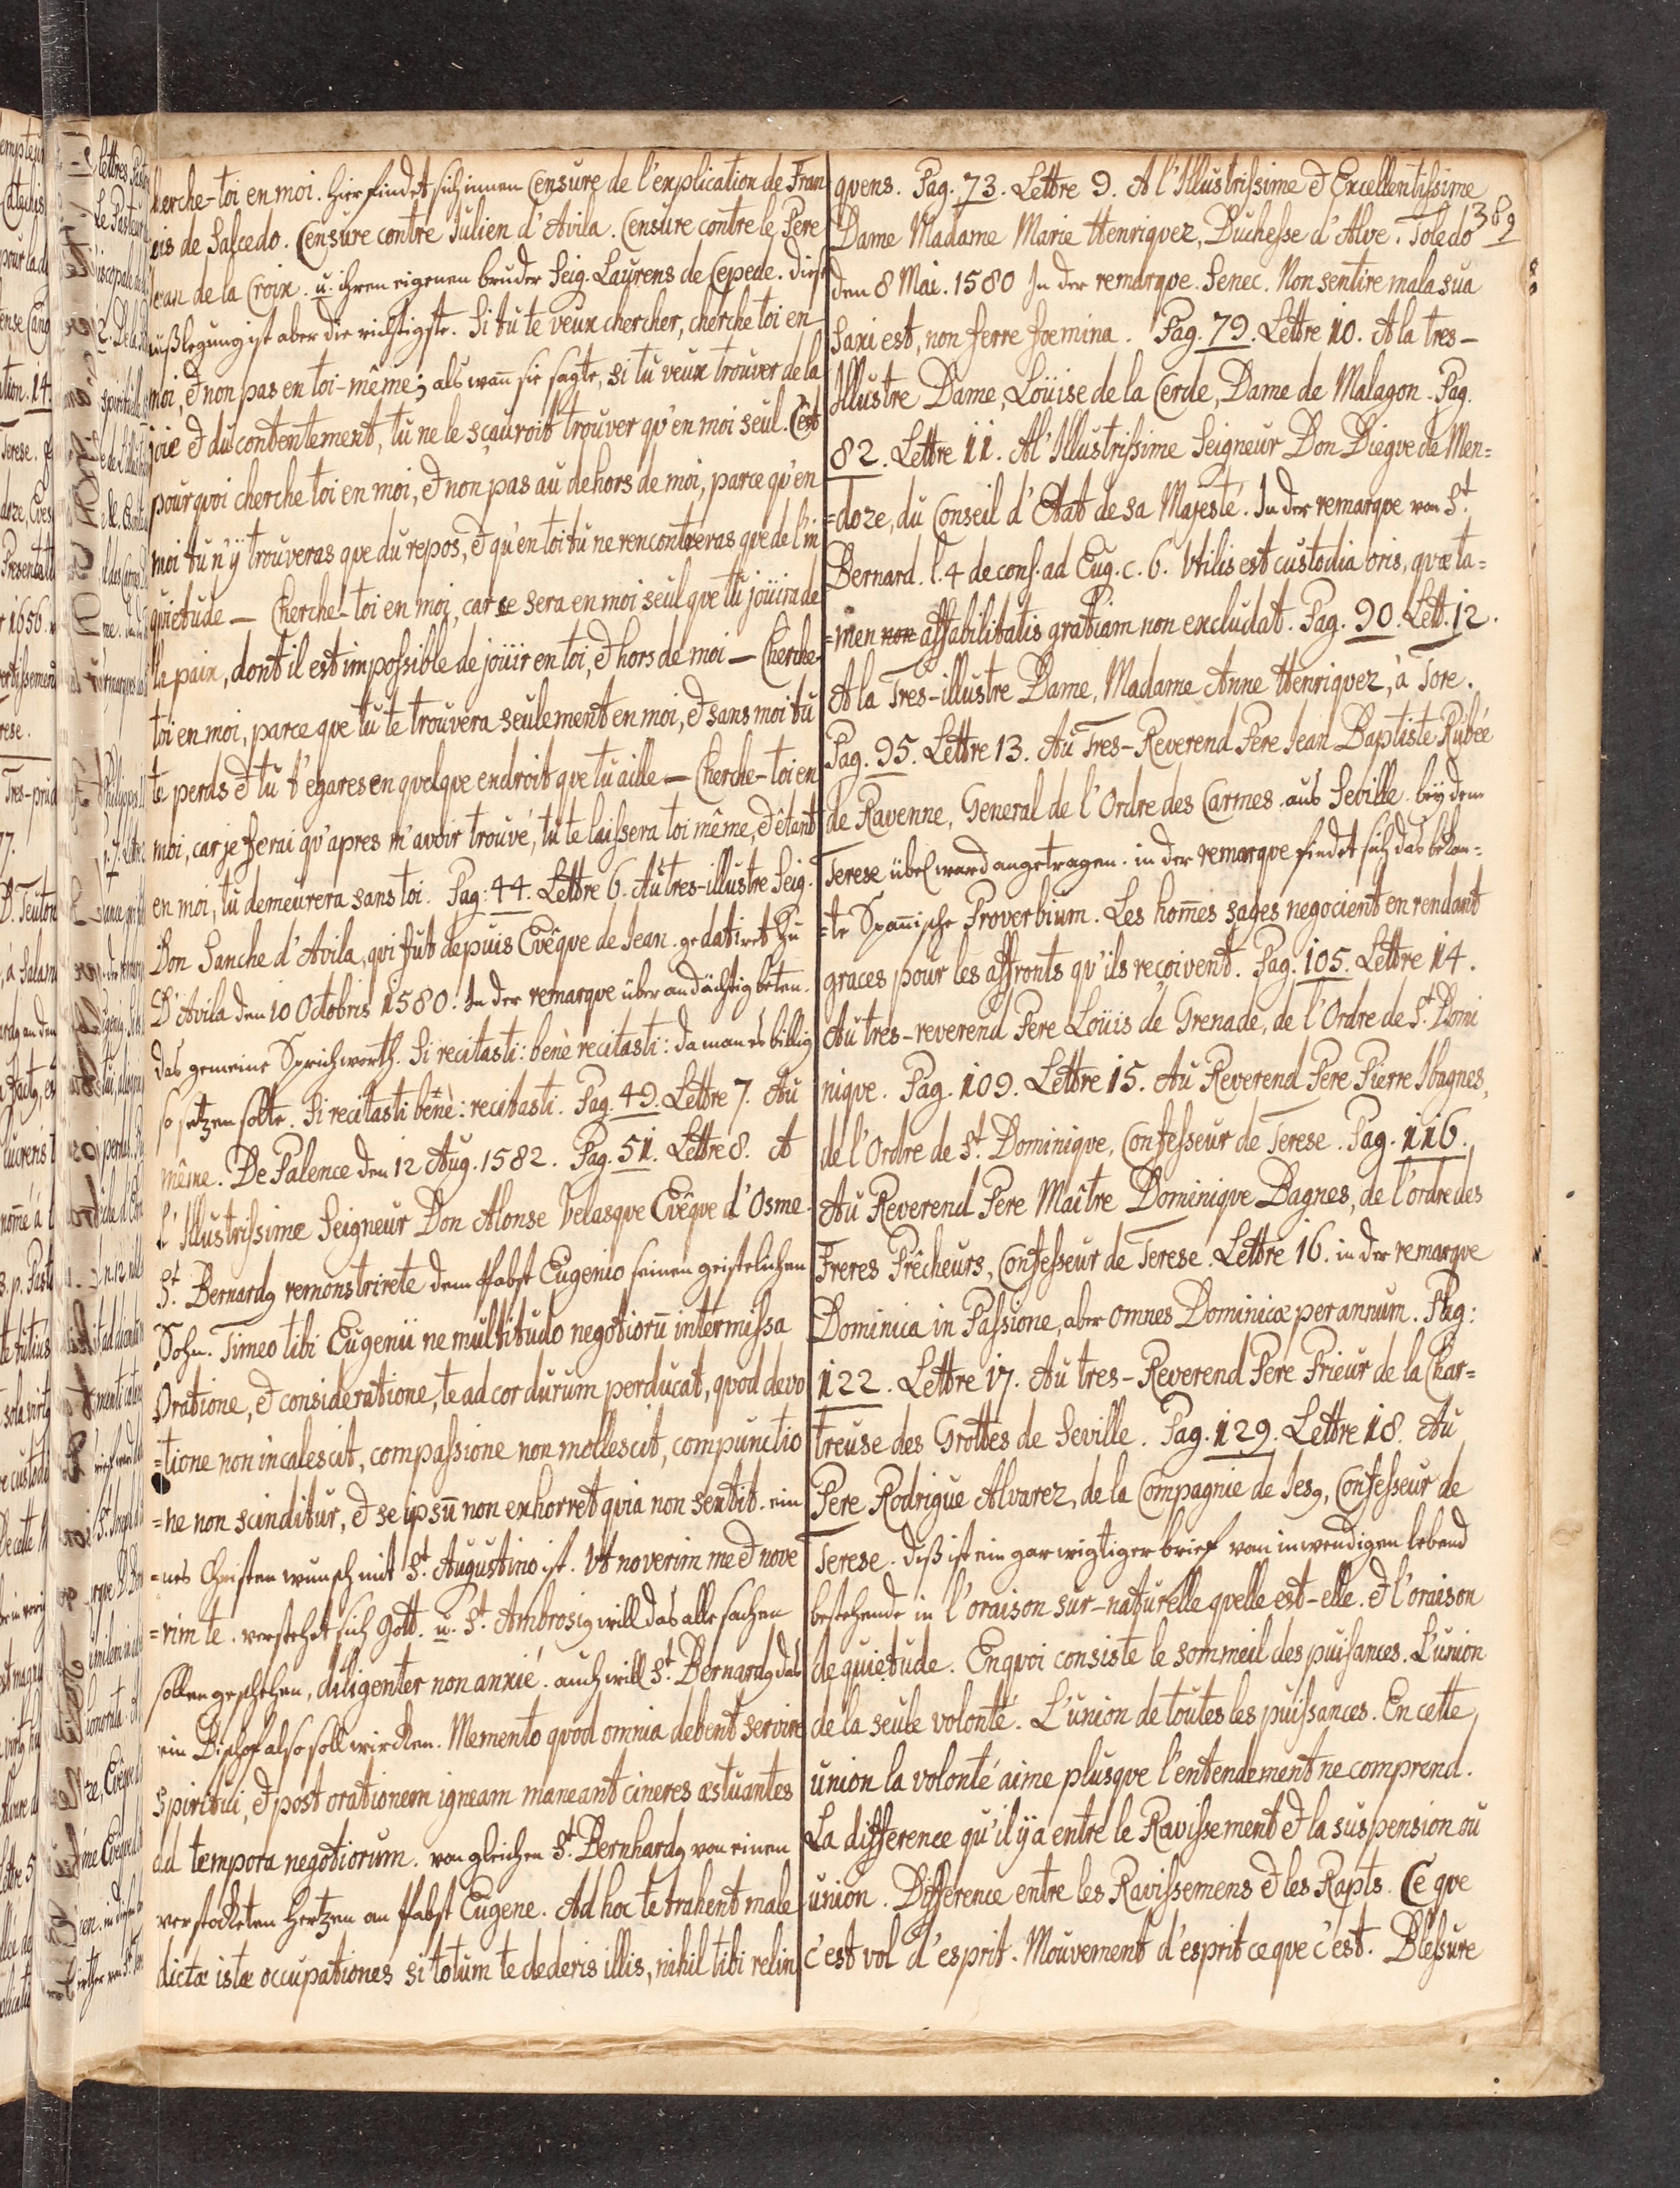 cherche-toi en moi. hier findet sich innen Censure de l'explication de Fran
cois de Salcedo. Censure contre Julien d'Avila. Censure contre le Pere
Jean de la Croix. u. ihren eigenen bruder Seig. Laurens de Cepede. diese
außlegung ist aber die richtigste. Si tu te veux chercher, cherche toi en
moi, et non pas en toi-même; als wan̄ sie sagte, si tu veux trouver de la
joie et du contentement, tu ne le sçauroit trouver qu'en moi seul. C'est
pourquoi cherche toi en moi, et non pas au dehors de moi, parce qu'en
moi tu n'ÿ trouveras que du repos, et qu'en toi tu ne rencontreras que de l'in
quietude — Cherche-toi en moi, car ce sera en moi seul que tu joüira de
la paix, dont il est impossible de joüir en toi, et hors de moi — Cherche-
toi en moi, parce que tu te trouvera seulement en moi, et sans moi tu
te perds et tu t'egares en quelque endroit que tu aille — Cherche-toi en
moi, car je ferai qu'apres m'avoir trouvé, tu te laissera toi même, et étant
en moi, tu demeurera sans toi. Pag: 44. Lettre 6. Au tres-illustre Seig.
Don Sanche d'Avila, qui fut depuis Evêque de Jean. gedatiret zu
D'Avila den 10 Octobris 1580. In der remarque über andächtig beten.
das gemeine Sprichworth. Si recitasti: benè recitasti: da man es billig
so setzen solte. Si recitasti benè: recitasti. Pag. 49. Lettre 7. Au
même. De Palence den 12 Aug. 1582. Pag. 51. Lettre 8. A
l'Illustrissime Seigneur Don Alonse Velasque Evêque d'Osme.
St. Bernardꝰ remonstrirete dem Pabst Eugenio seinen geistlichen
Sohn. Timeo tibi Eugenii ne multitudo negotiorū intermissa
Oratione, et consideratione, te ad cor durum perducat, quod devo
=tione non incalescit, compassione non mollescit, compunctio
=ne non scinditur, et se ipsū non exhorret quia non sentit. ein
=nes Christen wunsch mit St. Augustino ist. Ut noverim me et nove
=rim te. verstehet sich Gott. u. St. Ambrosiꝰ will das alle sachen
sollen geschehen, diligenter non anxié. auch will St. Bernardꝰ das
ein Bischof also soll wircken. Memento quod omnia debent servire
spiritui, et post orationem igneam maneant cineres æstuantes
ad tempora negotiorum. von gleichen St. Bernhardꝰ von einen
verstockten Hertzen an Pabst Eugene. Ad hoc te trahent male
dictæ istæ occupationes si totum te dederis illis, nihil tibi relin
quens. Pag. 73. Lettre 9. A l'Illustrissime et Excellentissime
Dame Madame Marie Henriquez, Duchesse d'Alve. Toledo
den 8 Mai. 1580 In der remarque. Senec. Non sentire mala sua
saxi est, non ferre foemina. Pag. 79. Lettre 10. A la tres-
Illustre Dame, Loüise de la Cerde, Dame de Malagon. Pag.
82. Lettre 11. A l'Illustrissime Seigneur Don Diegve de Men=
=doze, du Conseil d'Etat de sa Majesté. In der remarque von St.
Bernard. l. 4 de cons. ad Eug. c. 6. Utilis est custodia oris, quæ ta=
=men non affabilitatis gratiam non excludat. Pag. 90. Lett. 12.
A la Tres-illustre Dame, Madame Anne Henriquez, à Tore.
Pag. 95. Lettre 13. Au Tres-Reverend Pere Jean Baptiste Rubée
de Ravenne, General de l'Ordre des Carmes. aus Seville. beÿ dem
Terese übel ward angetragen. in der remarque findet sich das bekan=
=te Span̄ische Proverbium. Les hom̄es sages negocient en rendant
graces pour les affronts qu'ils reçoivent. Pag. 105. Lettre 14.
Au tres-reverend Pere Loüis de Grenade, de l'Ordre de St. Domi
nique. Pag. 109. Lettre 15. Au Reverend Pere Pierre Ibagnes,
de l'Ordre de St. Dominique, Confesseur de Terese. Pag. 116.
Au Reverend Pere Maître Dominique Bagnes, de l'ordre des
Freres Prêcheurs, Confesseur de Terese. Lettre 16. in der remarque
Dominica in Passione, aber omnes Dominicæ per annum. Pag:
122. Lettre 17. Au tres-Reverend Pere Prieur de la Char=
treuse des Grottes de Seville. Pag. 129. Lettre 18. Au
Pere Rodrigue Alvarez, de la Compagnie de Jesꝰ, Confesseur de
Terese. diß ist ein gar wigtiger brief vom inwendigen lebend
bestehende in l'oraison sur-naturelle quelle est-elle. et l'oraison
de quietude. En quoi consiste le sommeil des puisances. L'union
de la seule volonté. L'union de toutes les puissances. En cette
union la volonté aime plusque l'entendement ne comprend.
La difference qu'il ÿ a entre le Ravissement et la suspension ou
union. Difference entre les Ravissemens et les Rapts. Ce que
c'est vol d'esprit. Mouvement d'esprit ce que c'est. Blessure